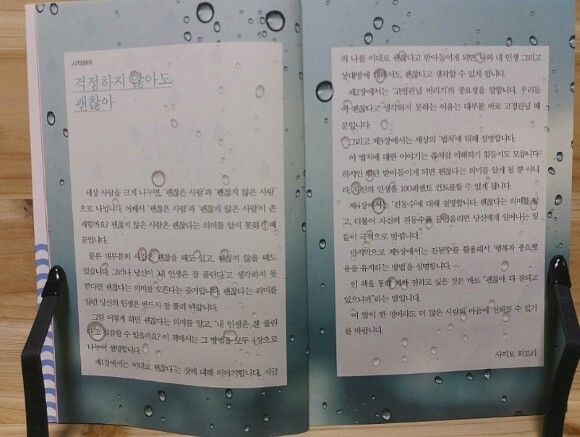 시작하며
걱정하지 않아도
괜찮아
세상 사람을 크게 나누면, '괜찮은 사람'과 '괜찮지 않은 사람'
으로 나뉩니다. 어째서 '괜찮은 사람'과 '괜찮지 않은 사람'이 존
재할까요? 괜찮지 않은 사람은 괜찮다는 의미를 알지 못하기 때
문입니다.
물론 대부분의 사람은 괜찮을 때도 있고, 괜찮지 않을 때도
있습니다. 그러나 당신이 '내 인생은 잘 풀린다'고 생각하지 못
한다면 괜찮다는 의미를 모른다는 증거입니다. 괜찮다는 의미를
알면 당신의 인생은 반드시 잘 풀려 변합니다.
그럼 어떻게 하면 괜찮다는 의미를 알고, '내 인생은 잘 풀린
다'고 실감할 수 있을까요? 이 책에서는 그 방법을 모두 5장으로
나누어 설명합니다.
제1장에서는 '이대로 괜찮다'는 것에 대해 이야기합니다. 지금
의 나를 이대로 괜찮다고 받아들이게 되면 나와 내 인생 그리고
상대방에 대해서도 괜찮다고 생각할 수 있게 됩니다.
제2장에서는 '고정관념 버리기'의 중요성을 말합니다. 우리들
이 괜찮다고 생각하지 못하는 이유는 대부분 바로 고정관념 때
문입니다.
그리고 제3장에서는 세상의 '법칙'에 대해 설명합니다.
이 법칙에 대한 이야기는 좀처럼 이해하기 힘들지도 모릅니다.
하지만 일단 받아들이게 되면 괜찮다는 의미를 알게 될 뿐 아니
라, 자신의 인생을 100퍼센트 컨트롤할 수 있게 됩니다.
제4장에서는 '진동수'에 대해 설명합니다. 괜찮다는 의미를 알
고, 더불어 자신의 진동수를 끌어올리면 당신에게 일어나는 일
들이 극적으로 바뀝니다.
마지막으로 제5장에서는 진동수를 활용해서 '행복과 풍요로
움'을 유지하는 방법을 설명합니다.
이 책을 통해 제가 전하고 싶은 것은 바로 "괜찮아. 다 잘되고
있으니까"라는 말입니다.
이 말이 한 명이라도 더 많은 사람의 마음에 전해질 수 있기
를 바랍니다.
사이토 히토리